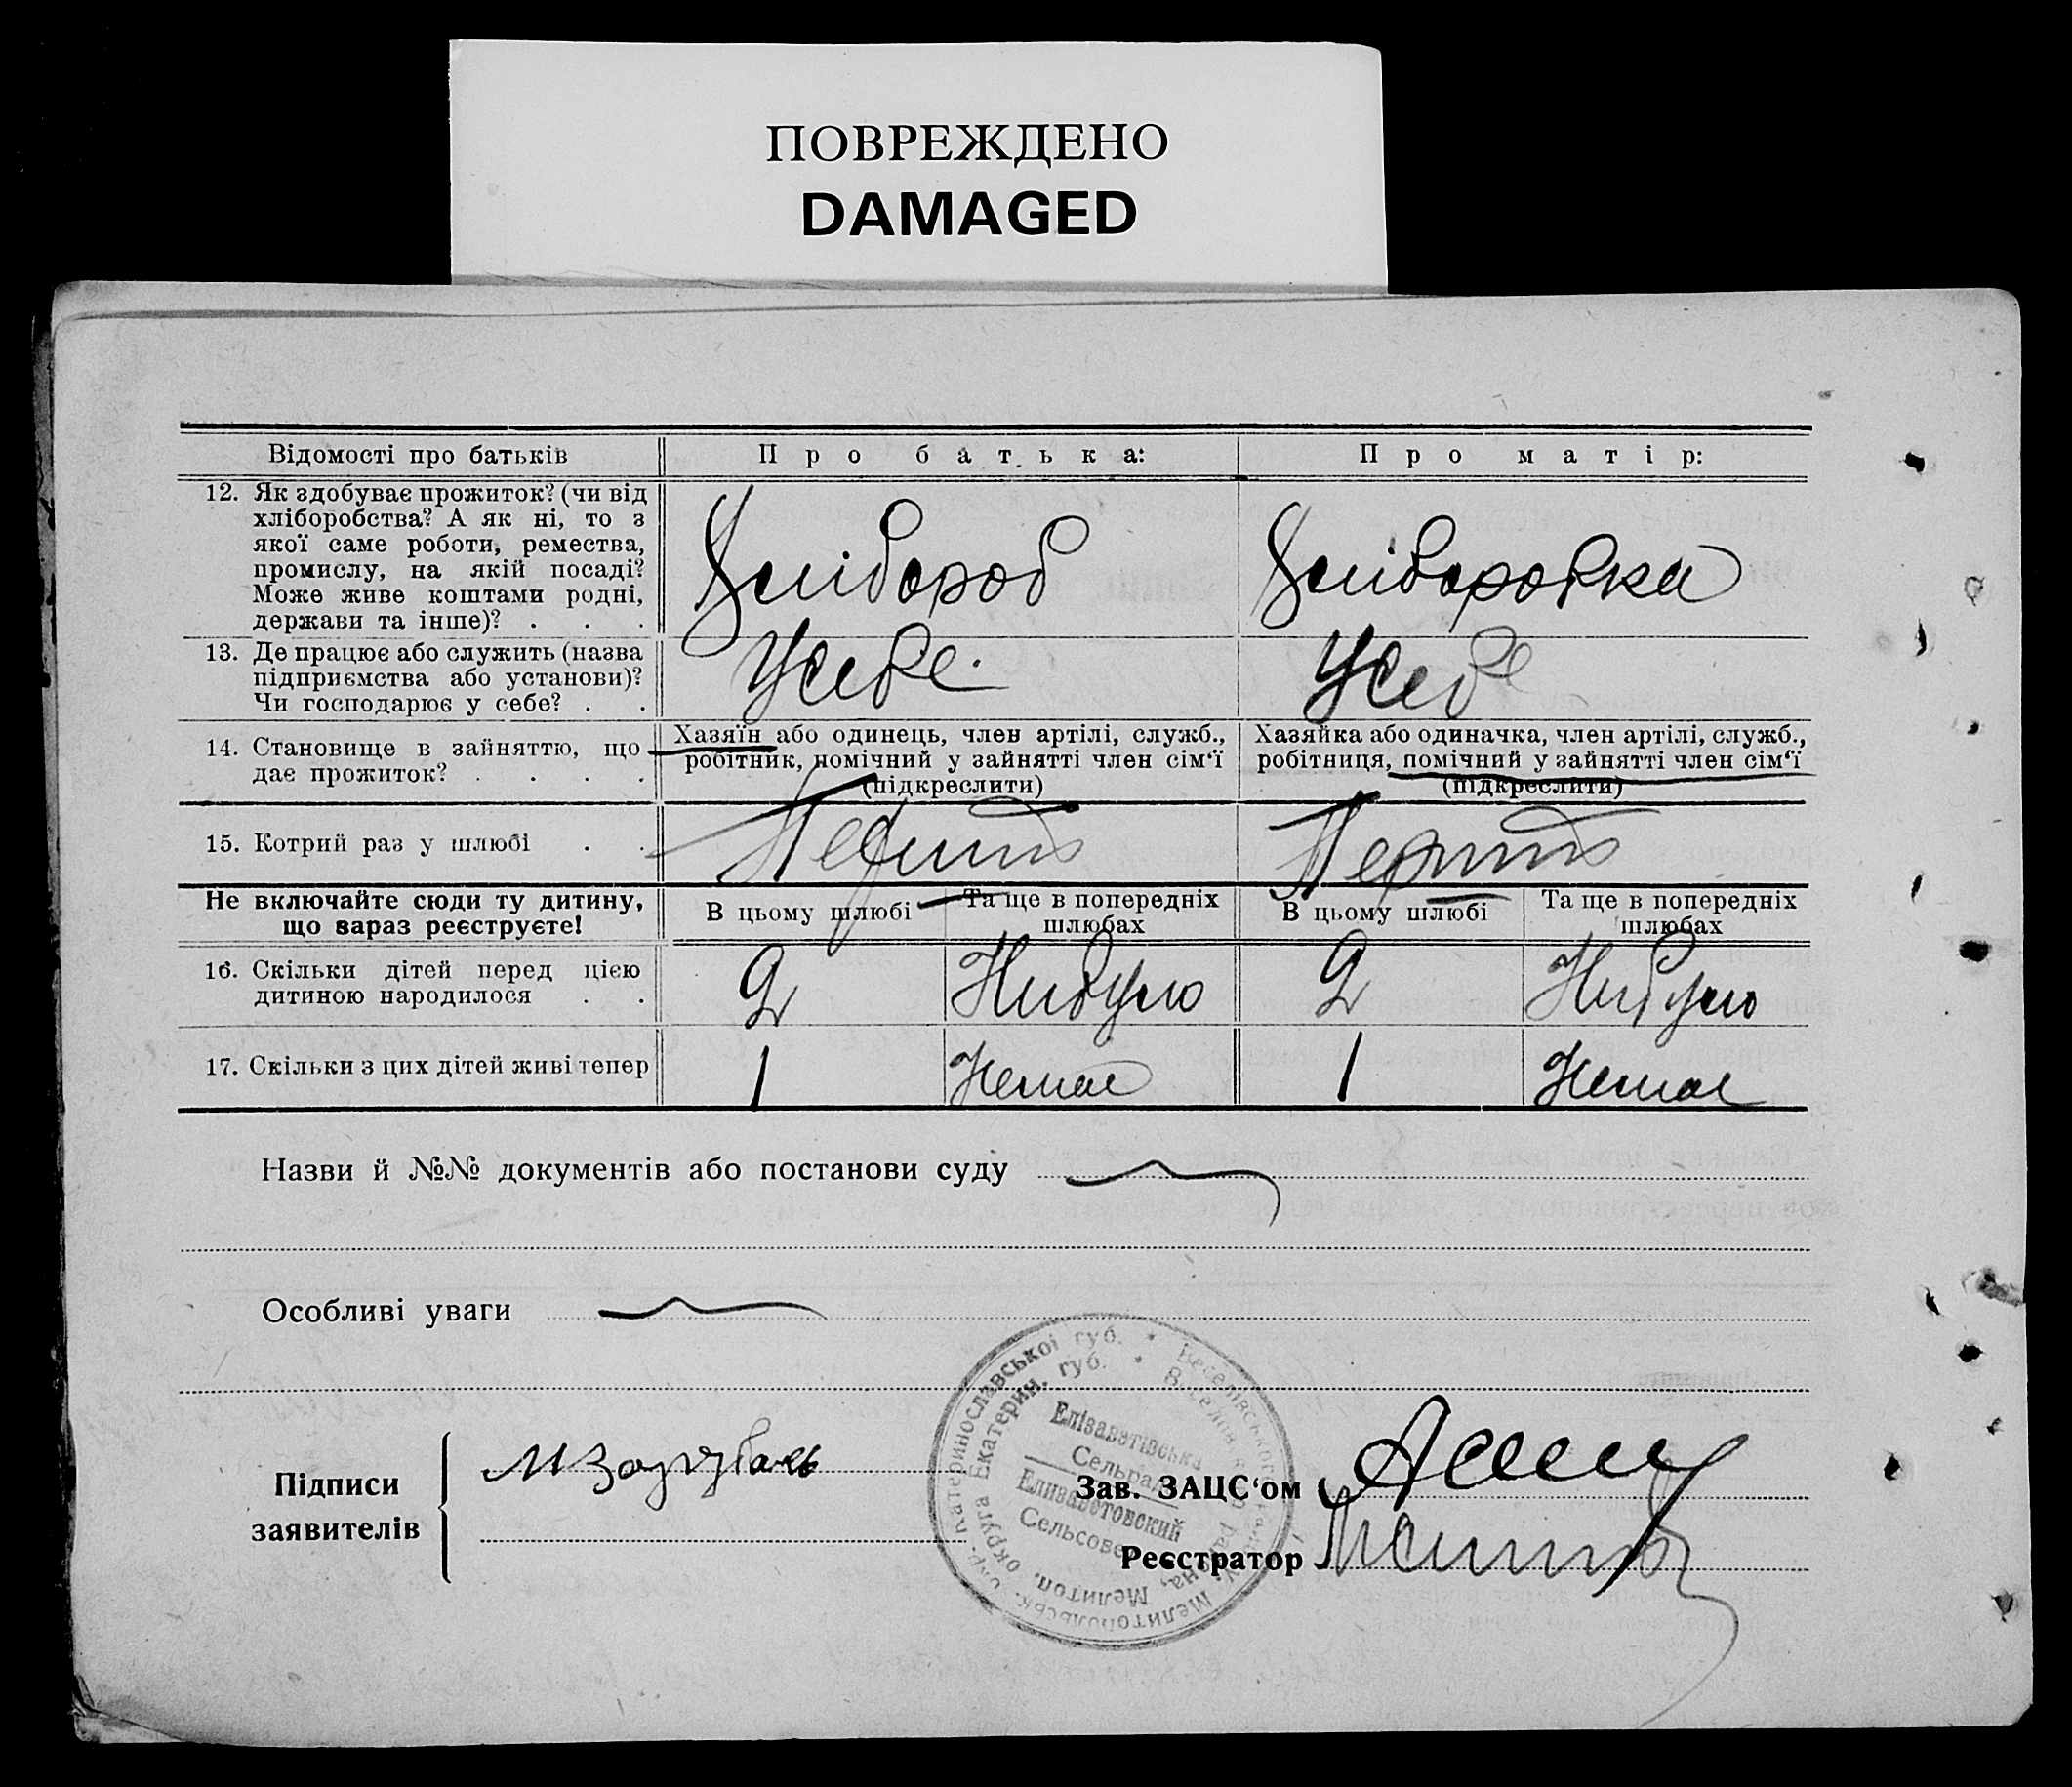 ПОВРЕЖДЕНО
DAMAGED
Відомості про батьків
Про батька:
Про матір:
12. Як здобуває прожиток? (чи від
хліборобства? А як ні, то з
якої саме роботи, ремества,
промислу, на якій посаді?
Може живе коштами родні,
держави та інше)? . . .
Хлібороб
Хліборобка
13. Де працює або служить (назва
підприємства або установи)?
Чи господарює у себе? . .
У себе.
У себе
14. Становище в зайняттю, що
дає прожиток? . . . .
Хазяїн або одинець, член артілі, служб.,
робітник, помічний у зайнятті член сім‘ї
(підкреслити)
Хазяйка або одиначка, член артілі, служб.,
робітниця, помічний у зайнятті член сім‘ї
(підкреслити)
15. Котрий раз у шлюбі . .
Перший
Перший
Не включайте сюди ту дитину,
що зараз реєструєте!
В цьому шлюбі
Та ще в попередніх
шлюбах
В цьому шлюбі
Та ще в попередніх
шлюбах
16. Скільки дітей перед цією
дитиною народилося . .
2
Небуло
2
Небуло
17. Скільки з цих дітей живі тепер
1
Немає
1
Немає
Назви й №№ документів або постанови суду
Особливі уваги
Підписи
заявителів
Зав. ЗАЦС‘ом
Реєстратор
Катеринославської губ. * Веселівського
Екатерин. губ. *
Мелитопольськ. окр.
Мелитоп. округа
района,
Єлізаветівська
Сельрада
Елизаветовский
Сельсовет